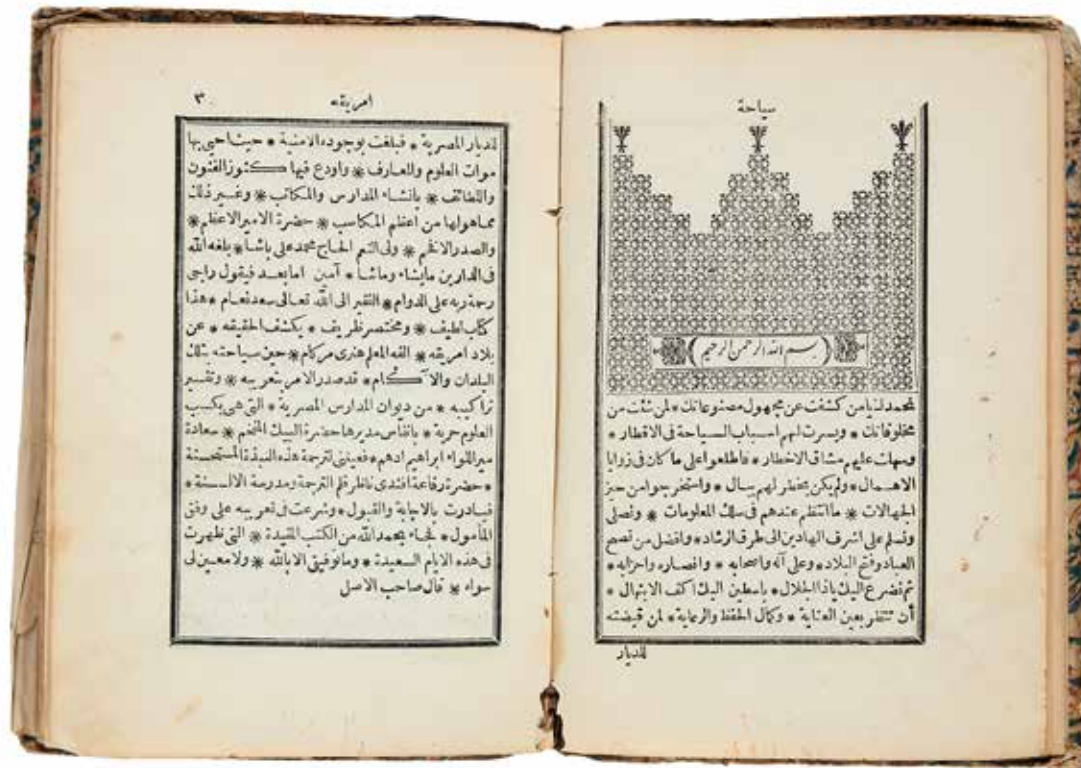 سياحة
(بسم الله الرحمن الرحيم)
نحمدك يا من كشفت عن مجهول مصنوعاتك * لمن شئت من
مخلوقاتك * ويسرت لهم اسباب السياحة فى الاقطار *
وسهلت عليهم مشاق الاخطار * فاطلعوا على ما كان فى زوايا
الاهمال * ولم يكن يخطر لهم ببال * واستخرجوا من حيز
الجهالات * ما انتظم عندهم فى سلك المعلومات * ونصلى
ونسلم على اشرف الهادين الى طرق الرشاد * وافضل من نصح
العباد وفتح البلاد * وعلى آله واصحابه * وانصاره واحزابه *
ثم نضرع اليك ياذا الجلال * باسطين اليك اكف الابتهال *
أن تنظر بعين العناية * وكمال الحفظ والرعاية * لمن قيضته
للديار
امريقة
٣
للديار المصرية * فبلغت بوجوده الامنية * حيث احيى بها
موات العلوم والمعارف * واودع فيها كنوز الفنون
واللطائف * بانشاء المدارس والمكاتب * وغير ذلك
مما هو لها من اعظم المكاسب * حضرة الامير الاعظم *
والصدر الافخم * ولى النعم الحاج محمد على باشا * بلغه الله
فى الدارين ما يشاء وما شا * آمين اما بعد فيقول راجى
رحمة ربه على الدوام * الفقير الى الله تعالى سعد نعام * هذا
كتاب لطيف * ومختصر ظريف * يكشف الحقيقه * عن
بلاد امريقه * الفه المعلم هنرى مركام * حين سياحته بتلك
البلدان والآكام * قد صدر الامر بتعريبه * وتفسير
تراكيبه * من ديوان المدارس المصرية * التى هى بكسب
العلوم حرية * بانفاس مديرها حضرة البيك المفخم * سعادة
مير اللواء ابراهيم ادهم * فعيننى لترجمة هذه النبذة المستحسنة
* حضرة رفاعة افندى ناظر قلم الترجمة ومدرسة الالسنة *
فبادرت بالاجابة والقبول * وشرعت فى تعريبه على وفق
المأمول * فجاء بحمد الله من الكتب المفيدة * التى ظهرت
فى هذه الايام السعيدة * وما توفيقى الا بالله * ولا معين لى
سواه * قال صاحب الاصل